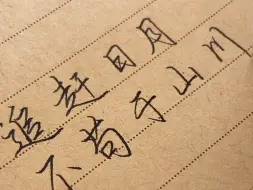 追赶日月
不苟于山川